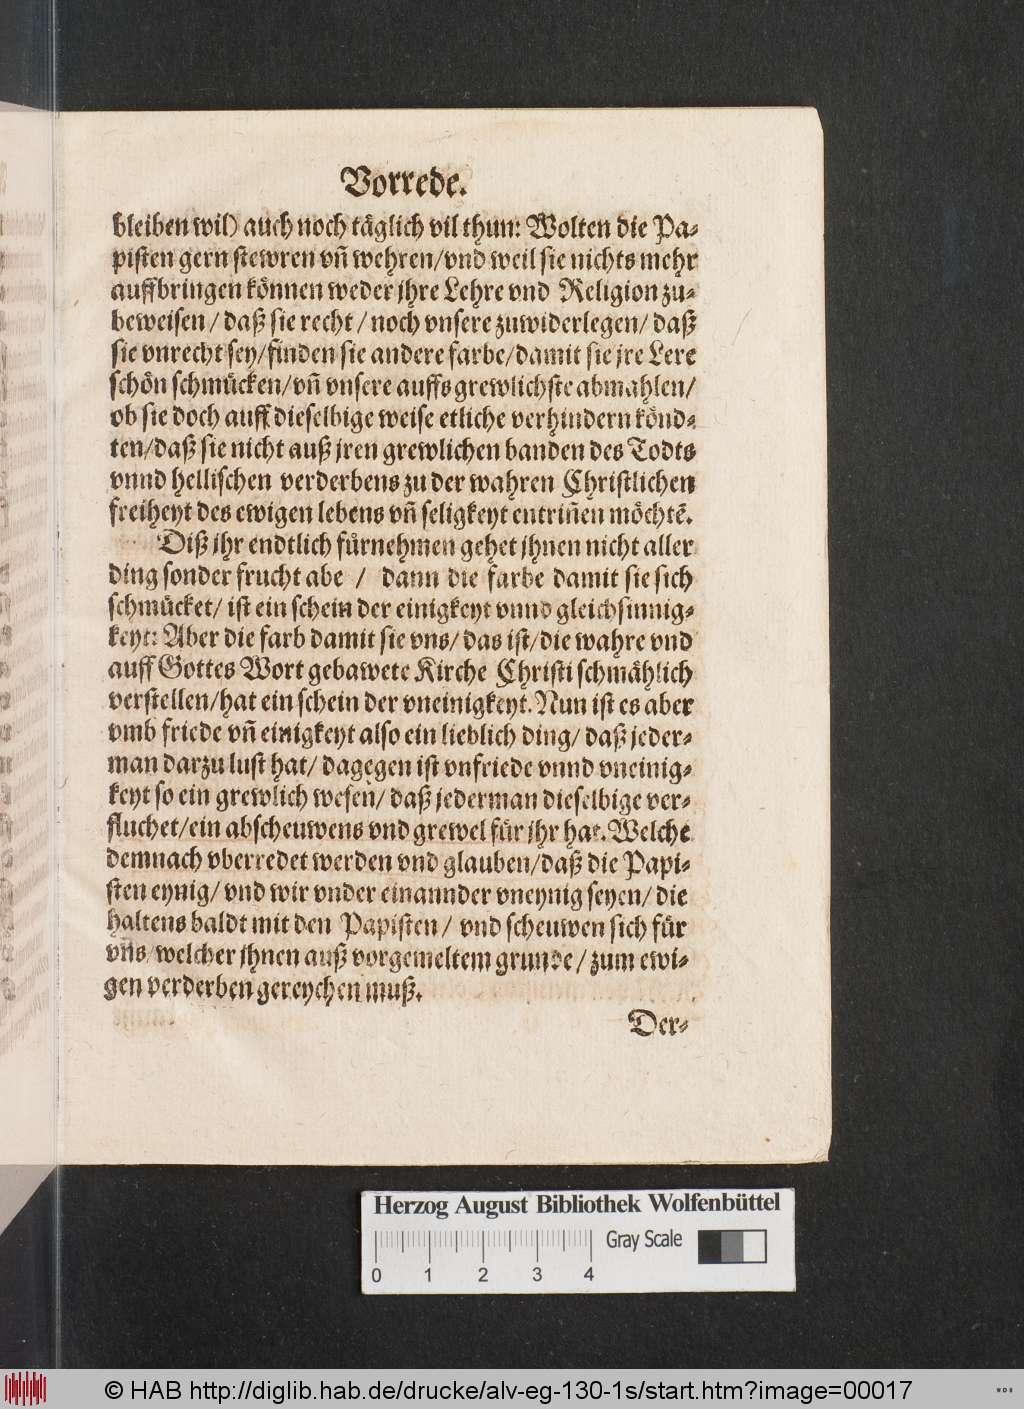 Vorrede.
bleiben wil) auch noch täglich vil thun: Wolten die Pa-
pisten gern stewren vñ wehren/vnd weil sie nichts mehr
auffbringen können weder jhre Lehre vnd Religion zu-
beweisen / daß sie recht / noch vnsere zuwiderlegen/ daß
sie vnrecht sey/finden sie andere farbe/damit sie jre Lere
schön schmücken/vñ vnsere auffs grewlichste abmahlen/
ob sie doch auff dieselbige weise etliche verhindern könd-
ten/daß sie nicht auß jren grewlichen banden des Todts
vnnd hellischen verderbens zu der wahren Christlichen
freiheyt des ewigen lebens vñ seligkeyt entriñen möchtẽ.
Diß jhr endtlich fürnehmen gehet jhnen nicht aller
ding sonder frucht abe / dann die farbe damit sie sich
schmücket/ ist ein schein der einigkeyt vnnd gleichsinnig-
keyt: Aber die farb damit sie vns/ das ist/die wahre vnd
auff Gottes Wort gebawete Kirche Christi schmählich
verstellen/hat ein schein der vneinigkeyt. Nun ist es aber
vmb friede vñ einigkeyt also ein lieblich ding/ daß jeder-
man darzu lust hat/ dagegen ist vnfriede vnnd vneinig-
keyt so ein grewlich wesen/ daß jederman dieselbige ver-
fluchet/ein abscheuwens vnd grewel für jhr hat. Welche
demnach vberredet werden vnd glauben/daß die Papi-
sten eynig/ vnd wir vnder einannder vneynig seyen/ die
haltens baldt mit den Papisten / vnd scheuwen sich für
vñs/welcher jhnen auß vorgemeltem grunde / zum ewi-
gen verderben gereychen muß.
Der-
Herzog August Bibliothek Wolfenbüttel
Gray Scale
0 1 2 3 4
© HAB http://diglib.hab.de/drucke/alv-eg-130-1s/start.htm?image=00017